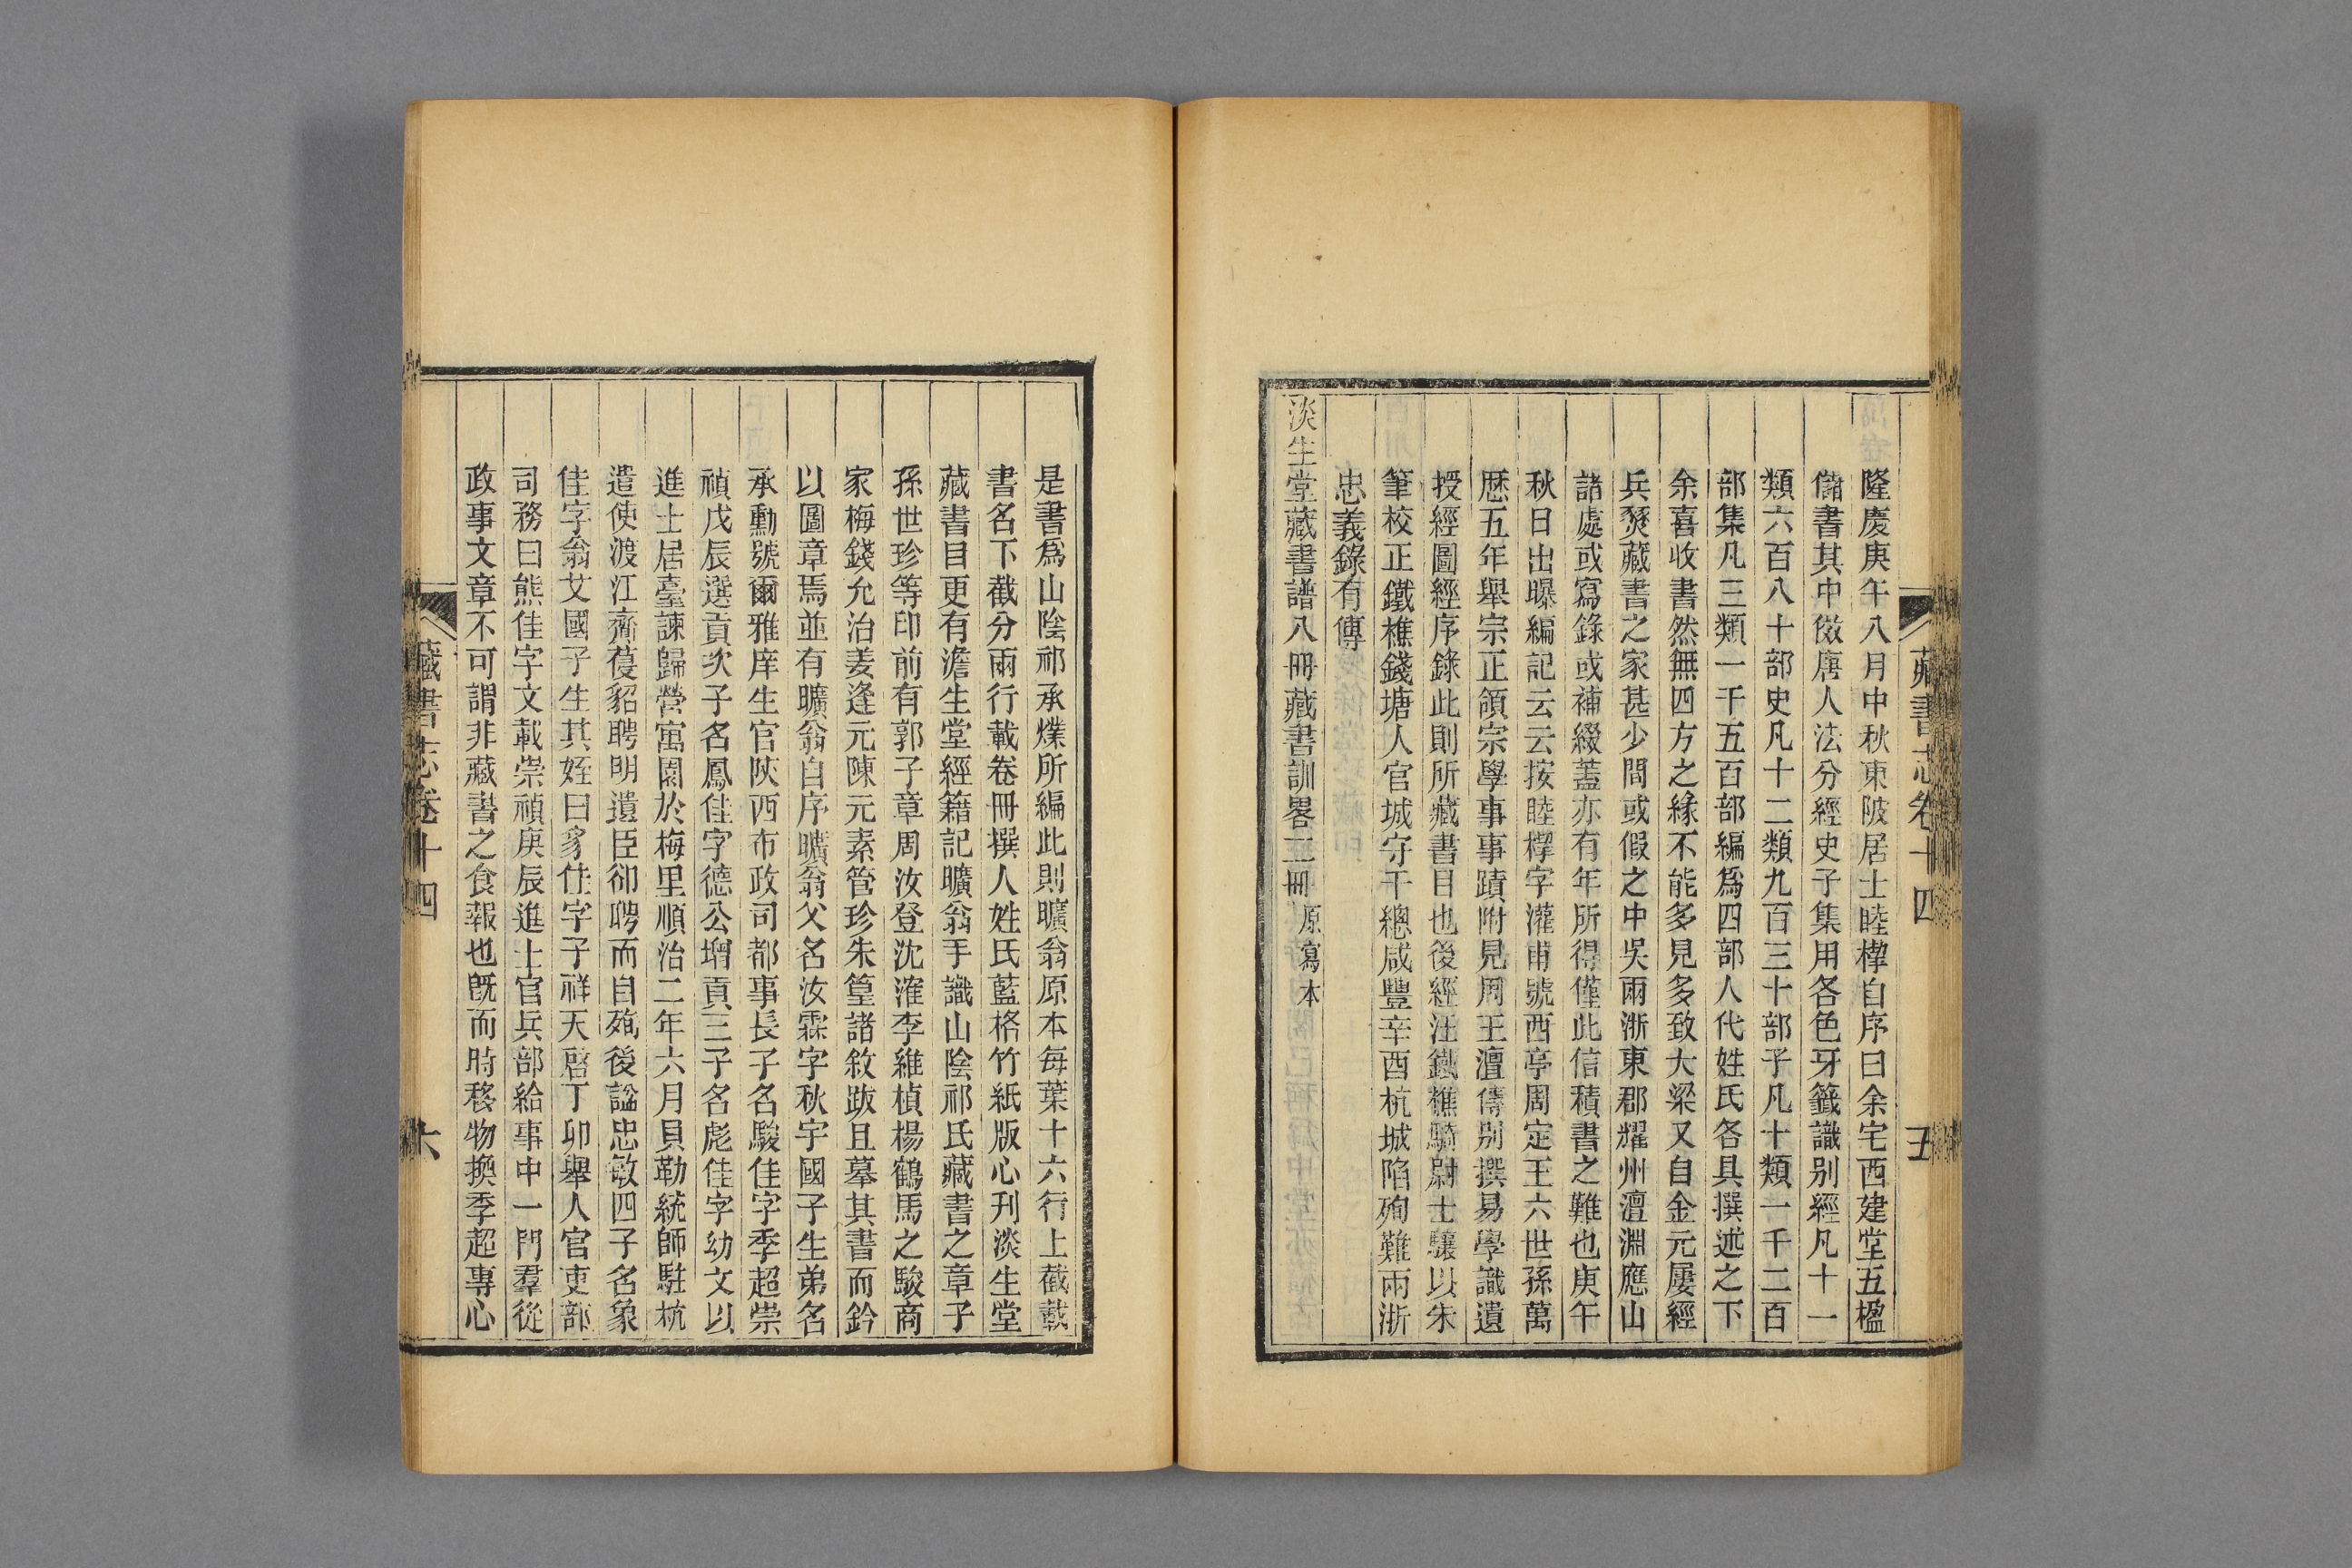 隆慶庚午八月中秋東陂居士睦㮮自序曰余宅西建堂五楹
儲書其中倣唐人法分經史子集用各色牙籤識别經凡十一
類六百八十部史凡十二類九百三十部子凡十類一千二百
部集凡三類一千五百部編爲四部人代姓氏各具撰述之下
余喜收書然無四方之緣不能多見多致大梁又自金元屢經
兵燹藏書之家甚少間或假之中吳兩浙東郡耀州澶淵應山
諸處或寫錄或補綴蓋亦有年所得僅此信積書之難也庚午
秋日出曝編記云云按睦㮮字灌甫號西亭周定王六世孫萬
歷五年舉宗正領宗學事事蹟附見周王㵆傳别撰易學識遺
授經圖經序錄此則所藏書目也後經汪鐵樵騎尉士驤以朱
筆校正鐵樵錢塘人官城守千總咸豐辛酉杭城陷殉難兩浙
忠義錄有傳
淡生堂藏書譜八冊藏書訓畧二冊 原寫本
藏書志卷十四 五
是書爲山陰祁承㸁所編此則曠翁原本每葉十六行上截載
書名下截分兩行載卷冊撰人姓氏藍格竹紙版心刊淡生堂
藏書目更有澹生堂經籍記曠翁手識山陰祁氏藏書之章子
孫世珍等印前有郭子章周汝登沈㴶李維楨楊鶴馬之駿商
家梅錢允治姜逢元陳元素管珍朱篁諸敘跋且摹其書而鈐
以圖章焉並有曠翁自序曠翁父名汝霖字秋宇國子生弟名
承勳號爾雅庠生官陝西布政司都事長子名駿佳字季超崇
禎戊辰選貢次子名鳳佳字德公增貢三子名彪佳字幼文以
進士居臺諫歸營寓園於梅里順治二年六月貝勒統師駐杭
遣使渡江齎葠貂聘明遺臣卻聘而自㱙後諡忠敏四子名象
佳字翁艾國子生其姪曰豸佳字子祥天啓丁卯舉人官吏部
司務曰熊佳字文載崇禎庚辰進士官兵部給事中一門羣從
政事文章不可謂非藏書之食報也旣而時移物換季超專心
藏書志卷十四 六